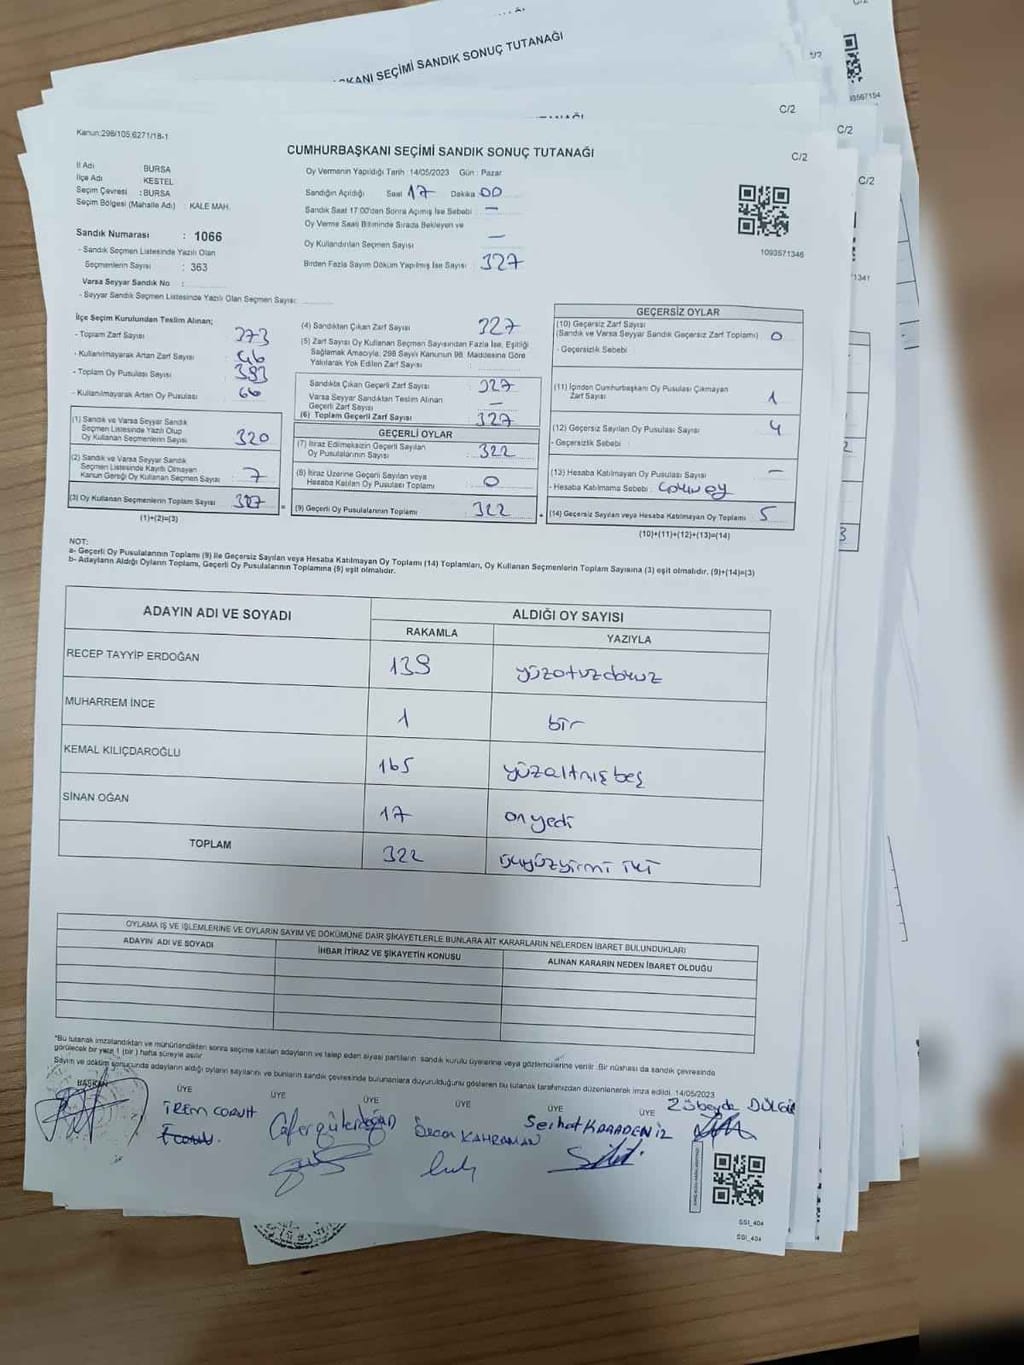 KANI SEÇİMİ SANDIK SONUÇ TUTANAĞI
C/2
C/2
C/2
C/2
Kanun:298/105,6271/18-1
CUMHURBAŞKANI SEÇİMİ SANDIK SONUÇ TUTANAĞI
İl Adı BURSA
İlçe Adı KESTEL
Seçim Çevresi : BURSA
Seçim Bölgesi (Mahalle Adı) : KALE MAH.
Sandık Numarası : 1066
- Sandık Seçmen Listesinde Yazılı Olan
Seçmenlerin Sayısı : 363
Varsa Seyyar Sandık No :
- Seyyar Sandık Seçmen Listesinde Yazılı Olan Seçmen Sayısı:
Oy Vermenin Yapıldığı Tarih : 14/05/2023 Gün : Pazar
Sandığın Açıldığı Saat 17 Dakika 00
Sandık Saat 17:00'dan Sonra Açılmış İse Sebebi : —
Oy Verme Saati Bitiminde Sırada Bekleyen ve
Oy Kullandırılan Seçmen Sayısı —
Birden Fazla Sayım Döküm Yapılmış İse Sayısı : 327
1093571346
İlçe Seçim Kurulundan Teslim Alınan;
- Toplam Zarf Sayısı : 373
- Kullanılmayarak Artan Zarf Sayısı : 46
- Toplam Oy Pusulası Sayısı : 393
- Kullanılmayarak Artan Oy Pusulası : 66
(1) Sandık ve Varsa Seyyar Sandık
Seçmen Listesinde Yazılı Olup
Oy Kullanan Seçmenlerin Sayısı 320
(2) Sandık ve Varsa Seyyar Sandık
Seçmen Listesinde Kayıtlı Olmayan
Kanun Gereği Oy Kullanan Seçmen Sayısı 7
(3) Oy Kullanan Seçmenlerin Toplam Sayısı 327
(1)+(2)=(3)
(4) Sandıktan Çıkan Zarf Sayısı 327
(5) Zarf Sayısı Oy Kullanan Seçmen Sayısından Fazla İse, Eşitliği
Sağlamak Amacıyla, 298 Sayılı Kanunun 98. Maddesine Göre
Yakılarak Yok Edilen Zarf Sayısı :
Sandıkta Çıkan Geçerli Zarf Sayısı : 327
Varsa Seyyar Sandıktan Teslim Alınan
Geçerli Zarf Sayısı : —
(6) Toplam Geçerli Zarf Sayısı : 327
GEÇERLİ OYLAR
(7) İtiraz Edilmeksizin Geçerli Sayılan
Oy Pusulalarının Sayısı : 322
(8) İtiraz Üzerine Geçerli Sayılan veya
Hesaba Katılan Oy Pusulaları Toplamı : 0
(9) Geçerli Oy Pusulalarının Toplamı : 322
GEÇERSİZ OYLAR
(10) Geçersiz Zarf Sayısı
(Sandık ve Varsa Seyyar Sandık Geçersiz Zarf Toplamı) : 0
- Geçersizlik Sebebi
(11) İçinden Cumhurbaşkanı Oy Pusulası Çıkmayan
Zarf Sayısı 1
(12) Geçersiz Sayılan Oy Pusulası Sayısı 4
- Geçersizlik Sebebi
(13) Hesaba Katılmayan Oy Pusulası Sayısı —
- Hesaba Katılmama Sebebi :
(14) Geçersiz Sayılan veya Hesaba Katılmayan Oy Toplamı 5
(10)+(11)+(12)+(13)=(14)
NOT:
a- Geçerli Oy Pusulalarının Toplamı (9) ile Geçersiz Sayılan veya Hesaba Katılmayan Oy Toplamı (14) Toplamları, Oy Kullanan Seçmenlerin Toplam Sayısına (3) eşit olmalıdır. (9)+(14)=(3)
b- Adayların Aldığı Oyların Toplamı, Geçerli Oy Pusulalarının Toplamına (9) eşit olmalıdır.
ADAYIN ADI VE SOYADI ALDIĞI OY SAYISI
RAKAMLA YAZIYLA
RECEP TAYYİP ERDOĞAN 139 yüzotuzdokuz
MUHARREM İNCE 1 bir
KEMAL KILIÇDAROĞLU 165 yüzaltmışbeş
SİNAN OĞAN 17 onyedi
TOPLAM 322 üçyüzyirmi iki
OYLAMA İŞ VE İŞLEMLERİNE VE OYLARIN SAYIM VE DÖKÜMÜNE DAİR ŞİKAYETLERLE BUNLARA AİT KARARLARIN NELERDEN İBARET BULUNDUKLARI
ADAYIN ADI VE SOYADI İHBAR İTİRAZ VE ŞİKAYETİN KONUSU ALINAN KARARIN NEDEN İBARET OLDUĞU
*Bu tutanak imzalandıktan ve mühürlendikten sonra seçime katılan adayların ve talep eden siyasi partilerin sandık kurulu üyelerine veya gözlemcilerine verilir. Bir nüshası da sandık çevresinde
görülecek bir yere 1 (bir) hafta süreyle asılır
Sayım ve döküm sonucunda adayların aldığı oyların sayılarını ve bunların sandık çevresinde bulunanlara duyurulduğunu gösteren bu tutanak tarafımızdan düzenlenerek imza edildi. 14/05/2023
BAŞKAN ÜYE ÜYE ÜYE ÜYE ÜYE ÜYE
İREM CORUH Cafer gülerdoğan Özcan KAHRAMAN Serhat KARADENİZ Zübeyde
SSI_404
SSI_404